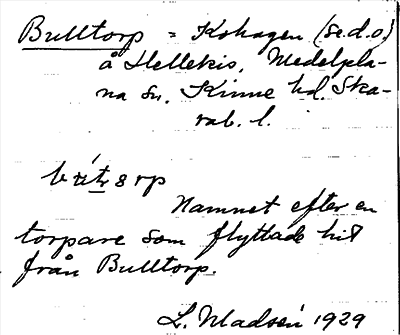 Bulltorp = Kohagen (se.d.o)
å Hellekis, Medelpla-
na sn. Kinne hd. Ska-
rab. l.
Namnet efter en
torpare som flyttade hit
från Bulltorp.
L. Madsén 1929